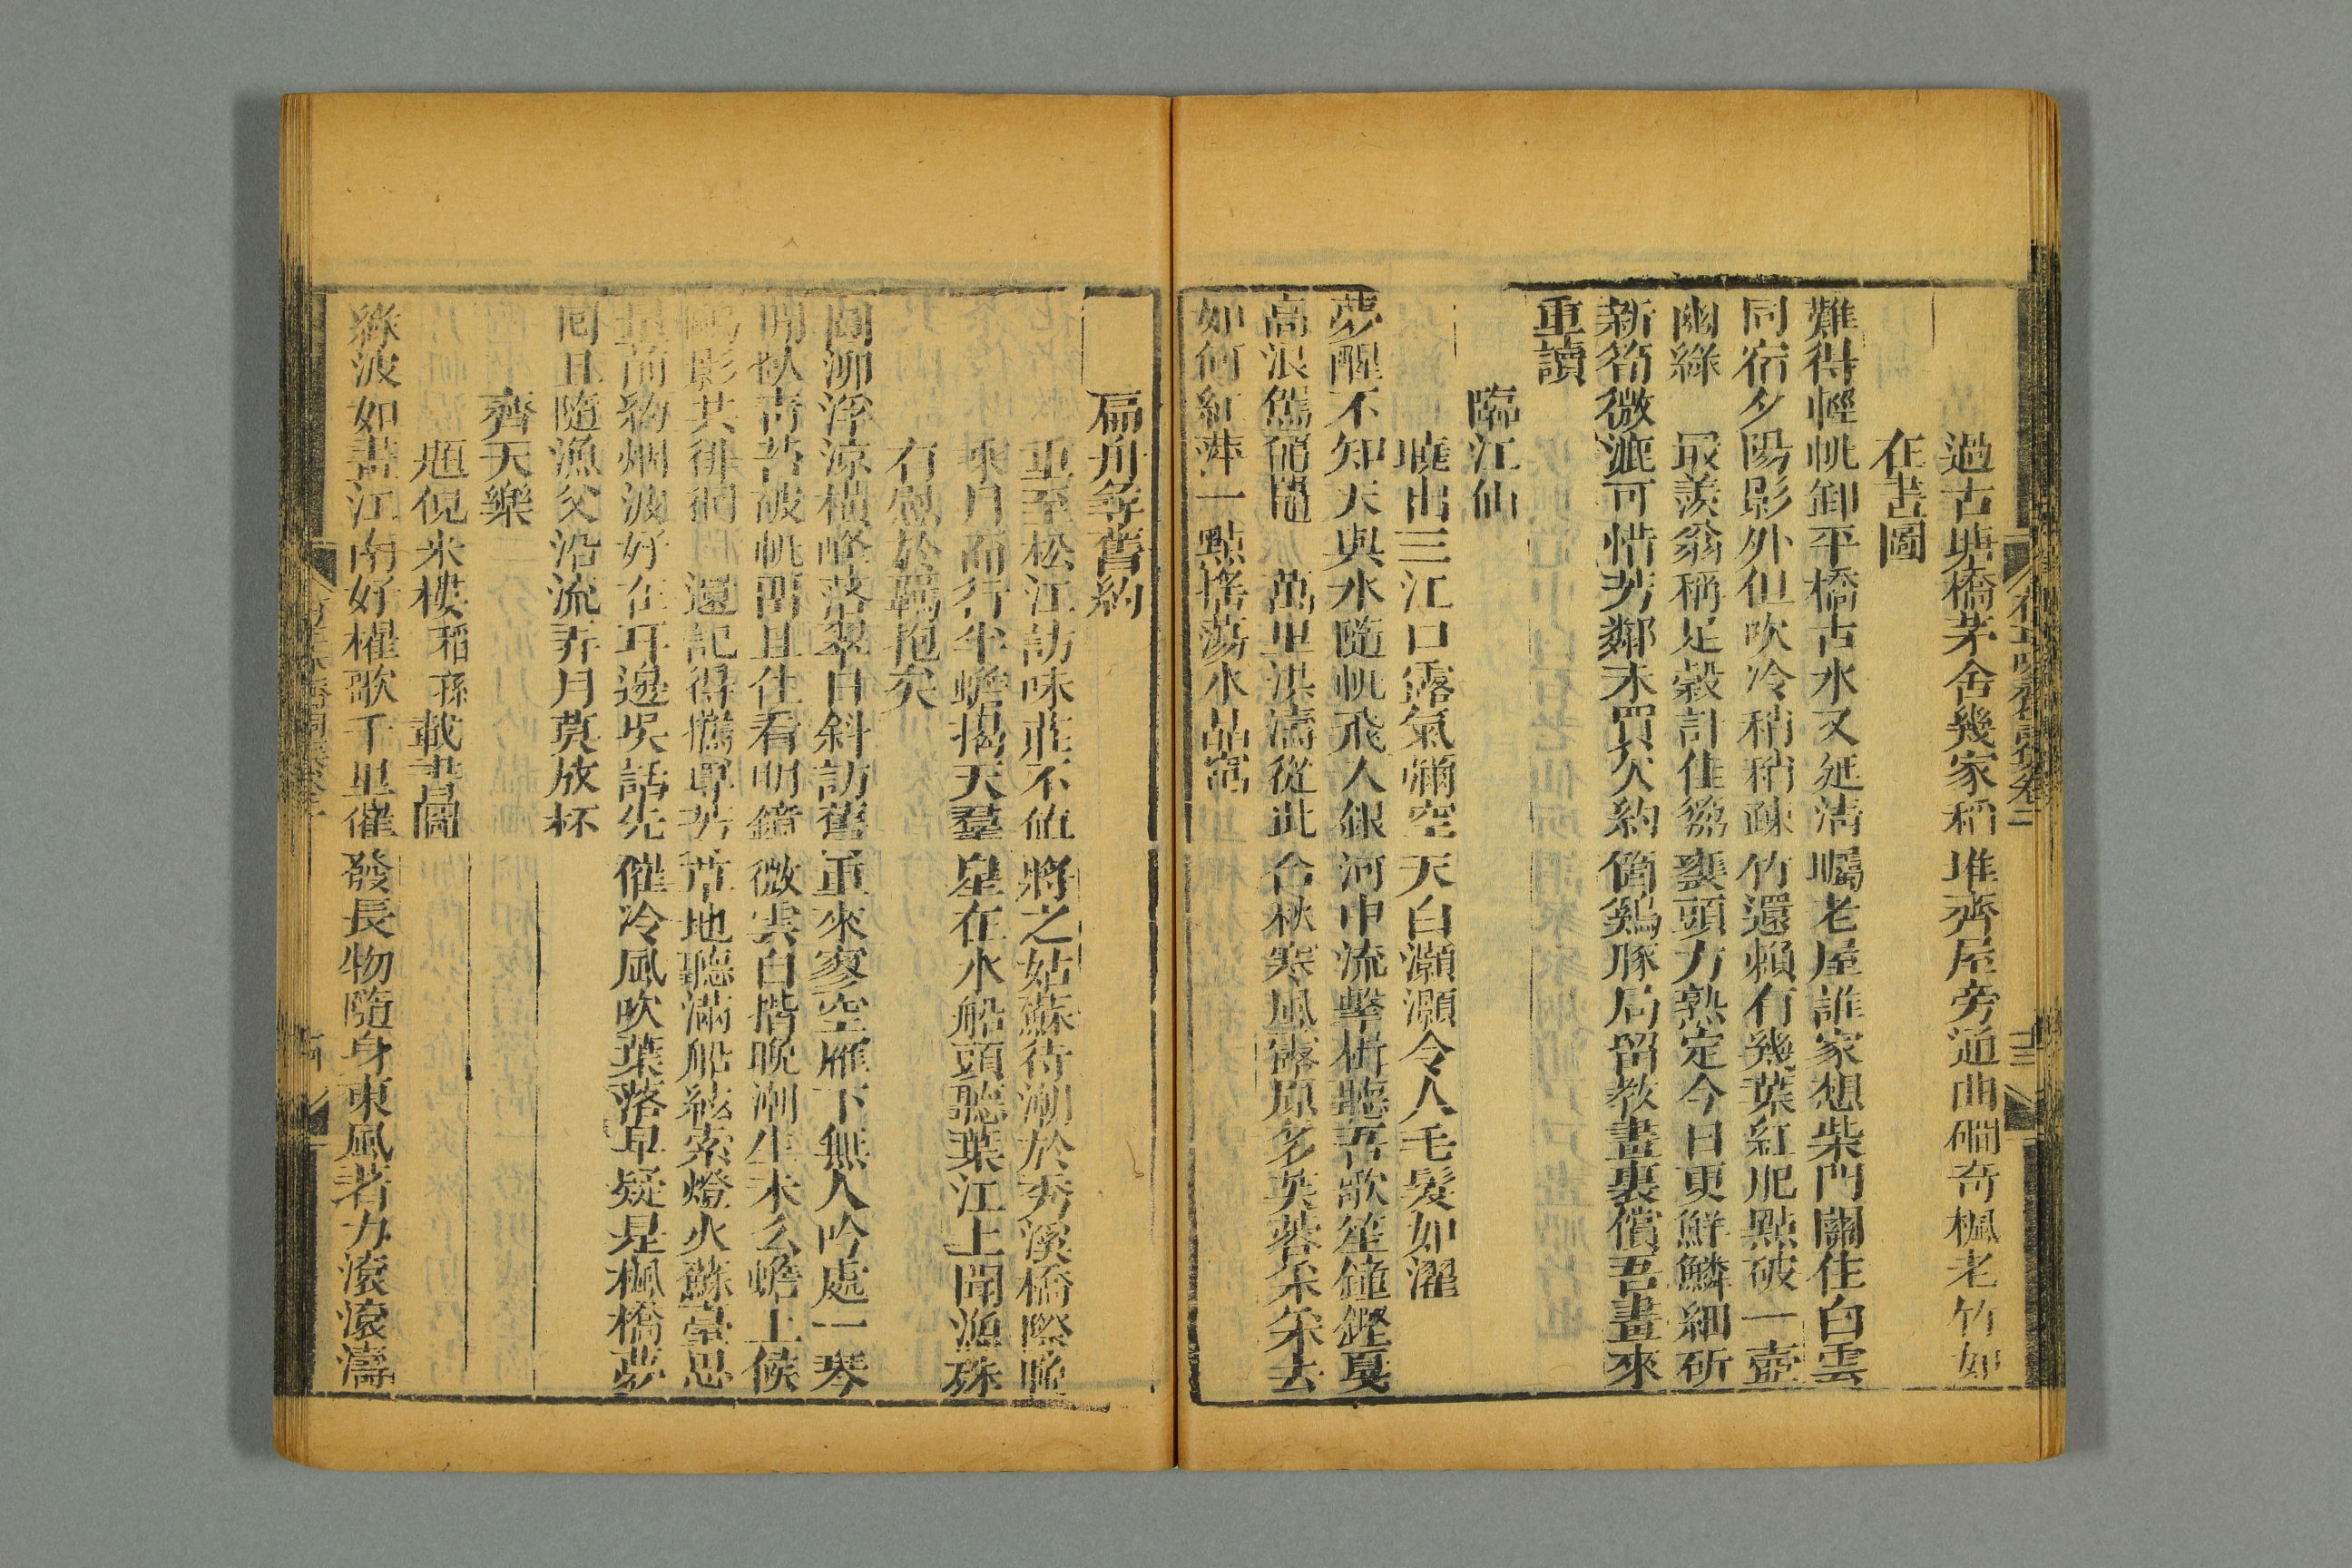 過古塘橋茅舍幾家稻堆齊屋旁通曲磵奇楓老竹如
在畫圖
難得輕帆卸平橋古水又延淸矚老屋誰家想柴門關住白雲
同宿夕陽影外但吹冷稍稍疎竹還賴有幾葉紅肥點破一壺
幽綠　最羨翁稱足榖計隹爲蠶頭力熟定今日更鮮鱗細斫
新篘微漉可惜芳鄰未買欠約箇鷄豚局留敎畫裏償吾畫來
重讀
臨江仙
曉出三江口露氣彌空天白灝灝令人毛髮如濯
夢醒不知天與水隨帆飛入銀河中流擊楫聽吾歌笙鐘鏗戛
高浪舊　萬里洪濤從此合秋寒風露原多芙蓉采采去
如何紅萍一點搖蕩水晶窩
扁舟尋舊約
重至松江訪味莊不值將之姑蘇待潮於秀溪橋際晚
乘月而行半蟾揭天羣星在水船頭聽葉江上聞漁殊
有慰於羈抱矣
圓泖浮涼橫峰落翠自斜訪舊重來寥空雁下無人吟處一琴
閒臥靑苔破帆開且住看明鏡微雲自揩晚潮生未么蟾上候
鷗影共徘徊　還記得攜尊芳草地聽滿船絃索燈火蘇臺思
量前約烟波好在耳邊吳話先催冷風吹葉落早疑是楓橋夢
囘且隨漁父沿流弄月莫放杯
齊天樂
題倪米樓稻孫載書圖
綠波如畫江南好櫂歌千里催發長物隨身東風著力滾滾濤